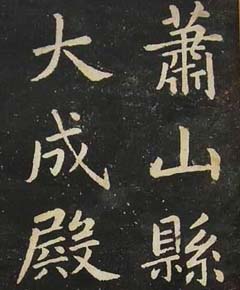 蕭山縣
大成殿